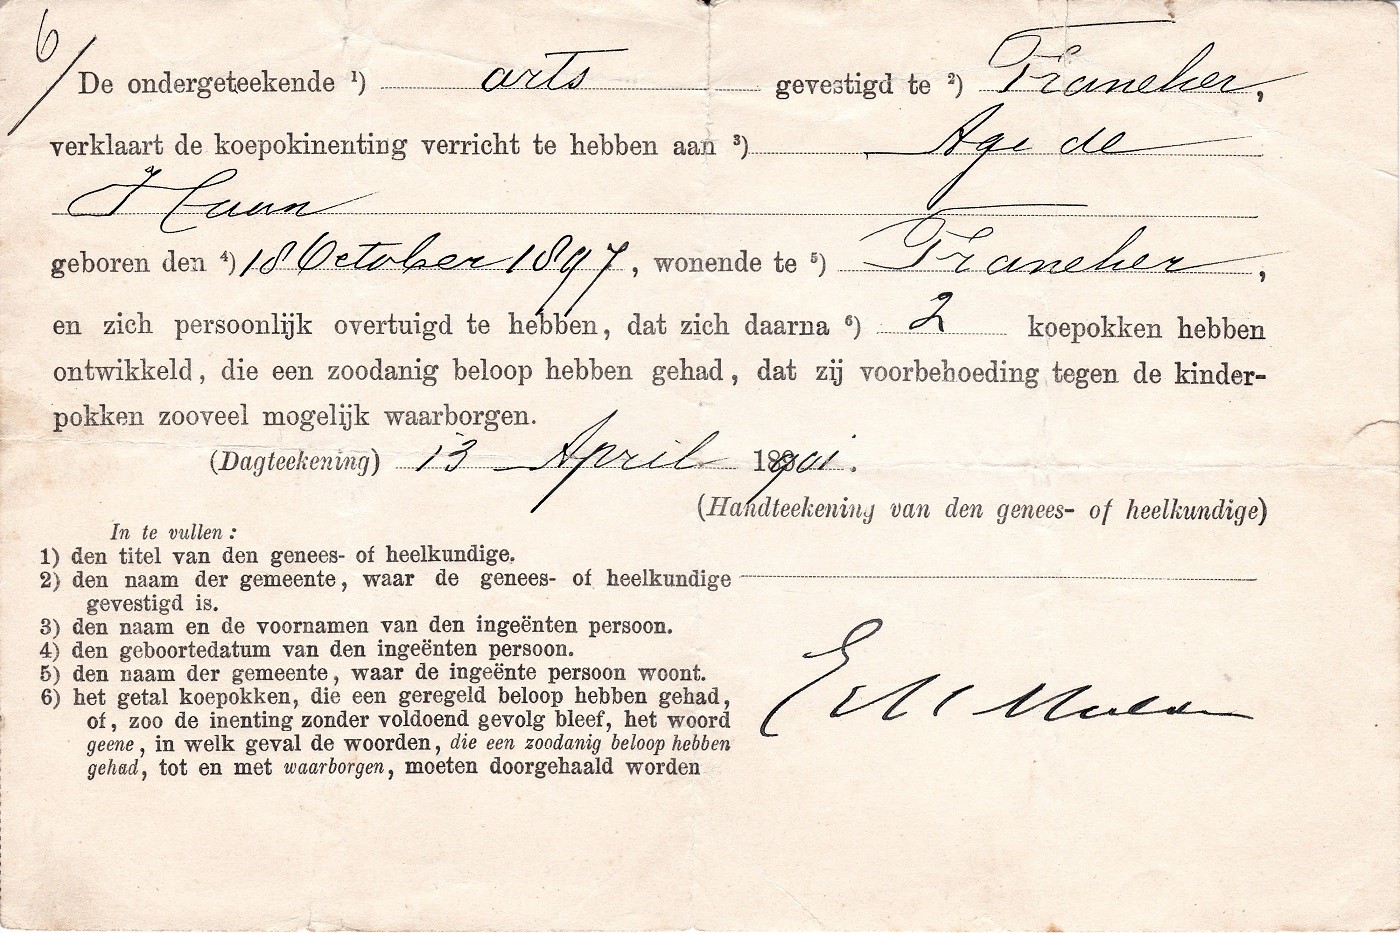 6/
De ondergeteekende ¹) arts gevestigd te ²) Franeker,
verklaart de koepokinenting verricht te hebben aan ³) Age de
Haan
geboren den ⁴) 18 October 1897, wonende te ⁵) Franeker,
en zich persoonlijk overtuigd te hebben, dat zich daarna ⁶) 2 koepokken hebben
ontwikkeld, die een zoodanig beloop hebben gehad, dat zij voorbehoeding tegen de kinder-
pokken zooveel mogelijk waarborgen.
(Dagteekening) 13 April 1901.
(Handteekening van den genees- of heelkundige)
In te vullen:
1) den titel van den genees- of heelkundige.
2) den naam der gemeente, waar de genees- of heelkundige
gevestigd is.
3) den naam en de voornamen van den ingeënten persoon.
4) den geboortedatum van den ingeënten persoon.
5) den naam der gemeente, waar de ingeënte persoon woont.
6) het getal koepokken, die een geregeld beloop hebben gehad,
of, zoo de inenting zonder voldoend gevolg bleef, het woord
geene, in welk geval de woorden, die een zoodanig beloop hebben
gehad, tot en met waarborgen, moeten doorgehaald worden